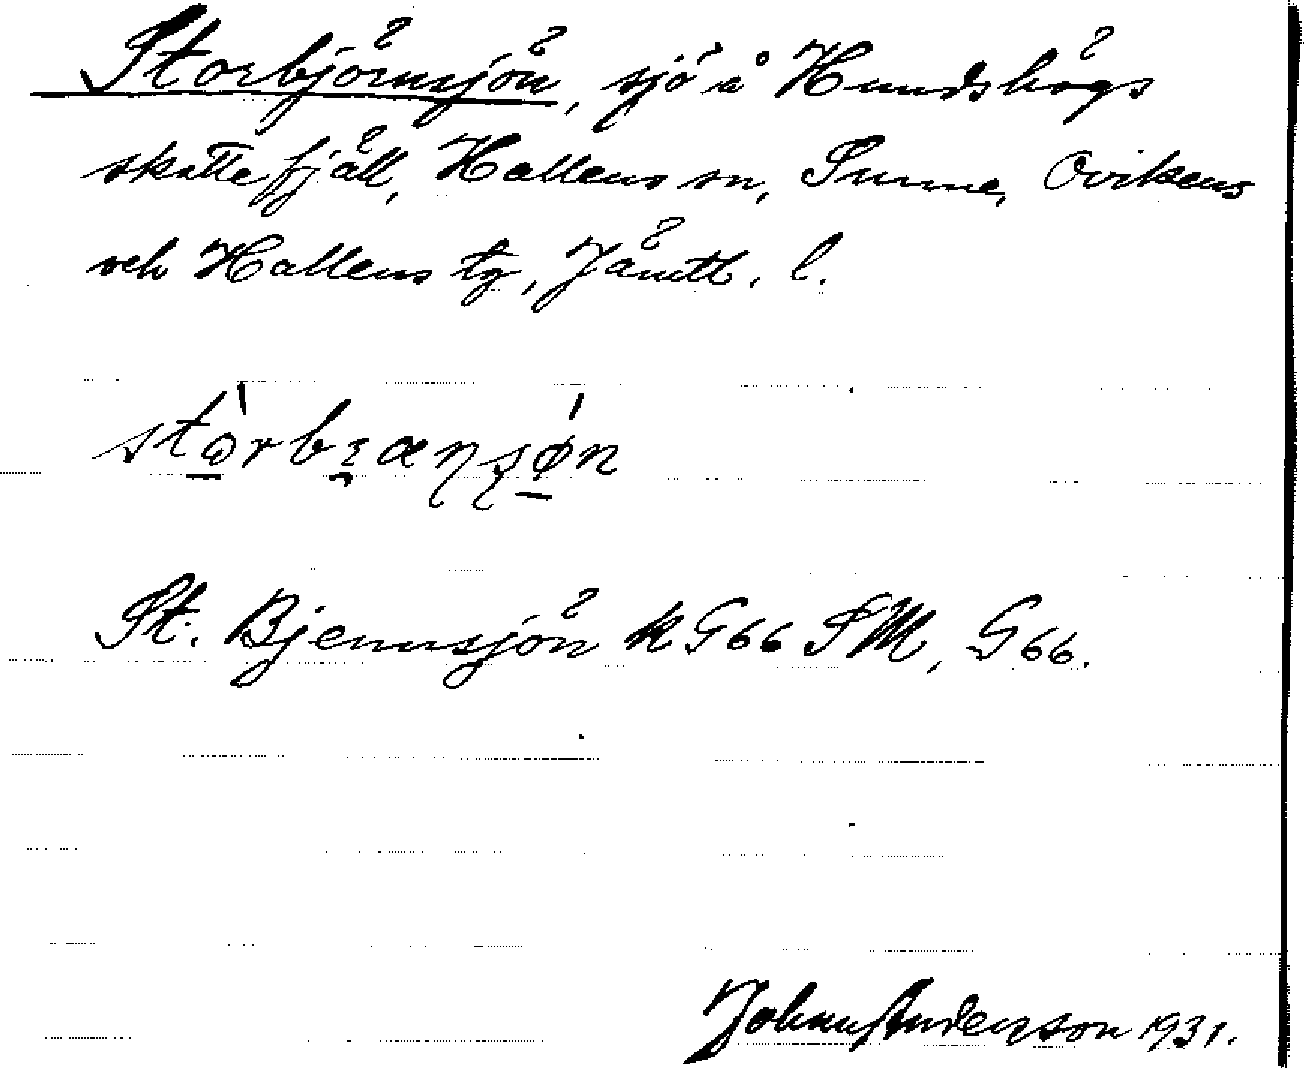 Storbjörnsjön, sjö å Hundshögs
skattefjäll, Hallens sn, Sunne, Ovikens
och Hallens tg, Jämtl. l.
St. Bjennsjön k G66 SM, G66.
Johan Anderson 1931.